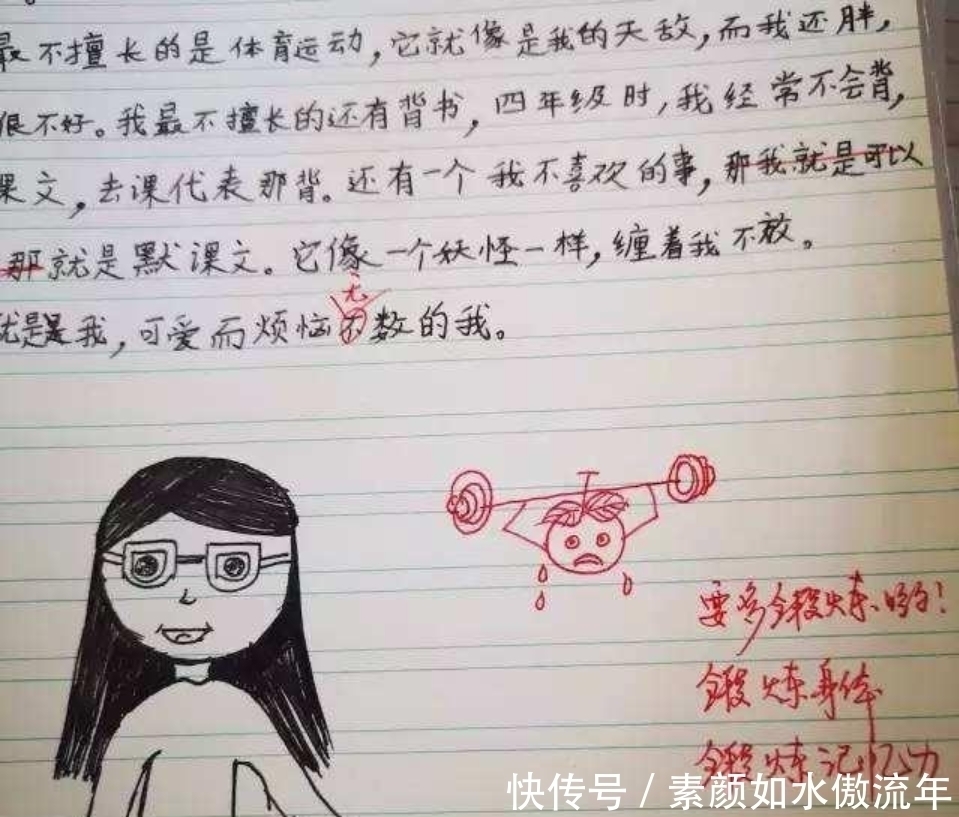 最不擅长的是体育运动，它就像是我的天敌，而我还胖，
很不好。我最不擅长的还有背书，四年级时，我经常不会背，
课文，去课代表那背。还有一个我不喜欢的事，那我就是可以
那就是默课文。它像一个妖怪一样，缠着我不放。
无
就是是我，可爱而烦恼不数的我。
要多锻炼哟！
锻炼身体
锻炼记忆力
快传号 / 素颜如水傲流年